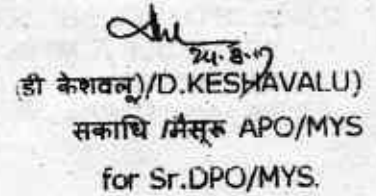 24.8.17
(डी केशवलू)/D.KESHAVALU)
सकाधि /मैसूरू APO/MYS
for Sr.DPO/MYS.